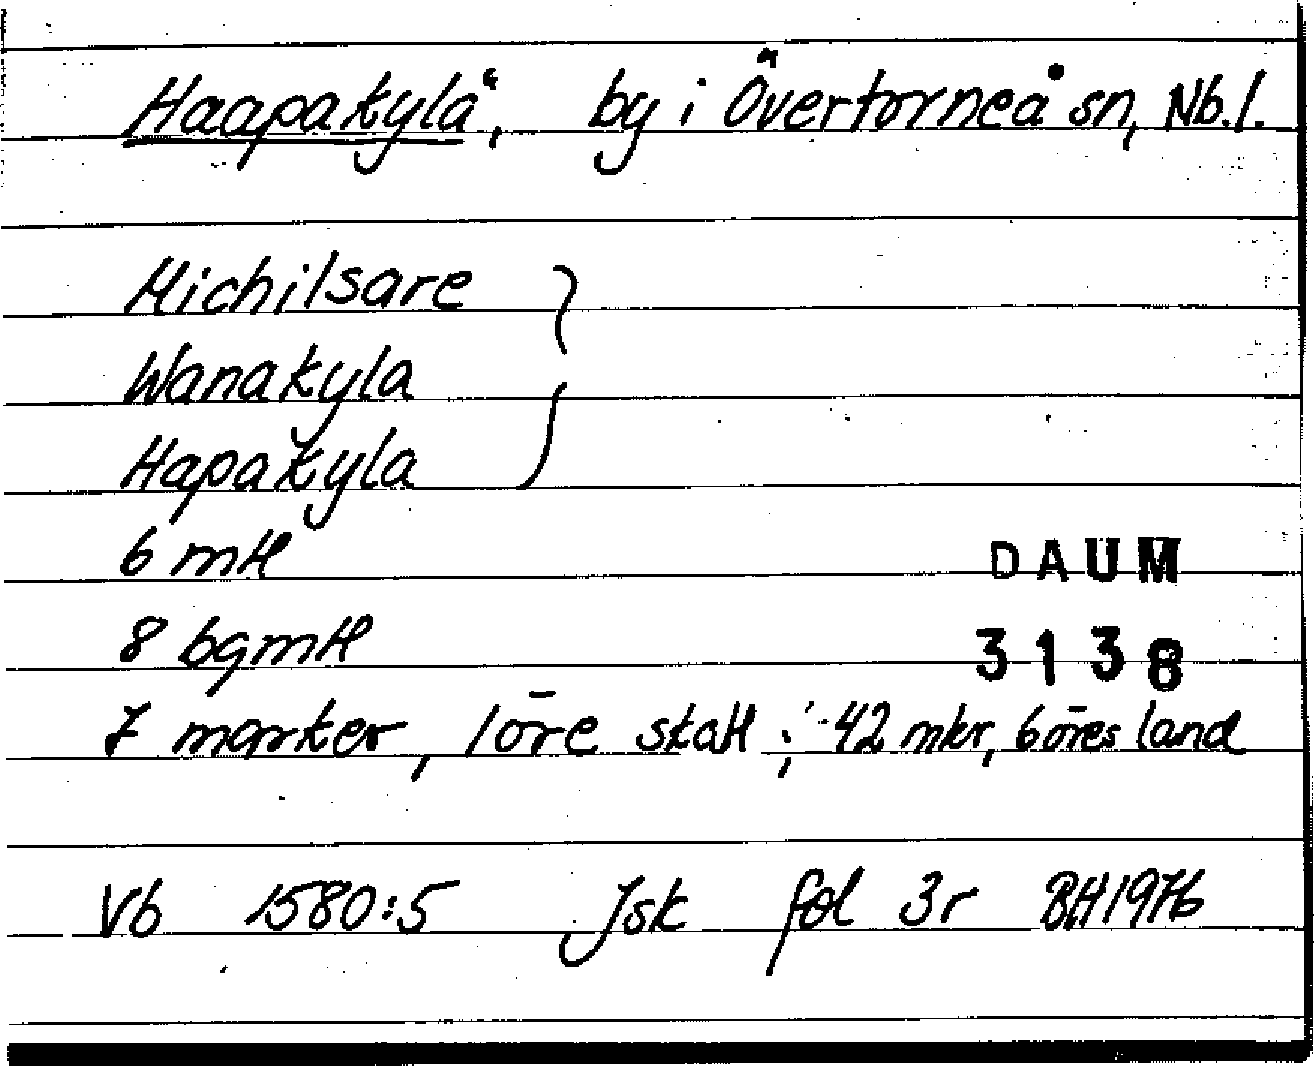 Haapakylä, by i Övertorneå sn, Nb.l.
Michilsare
Wanakyla
Hapakyla
6 mtl
8 bgmtl
DAUM
3138
7 marker, 1 öre skatt; 42 mkr, 6 öres land
Vb 1580:5 Jsk fol 3r BH 1976